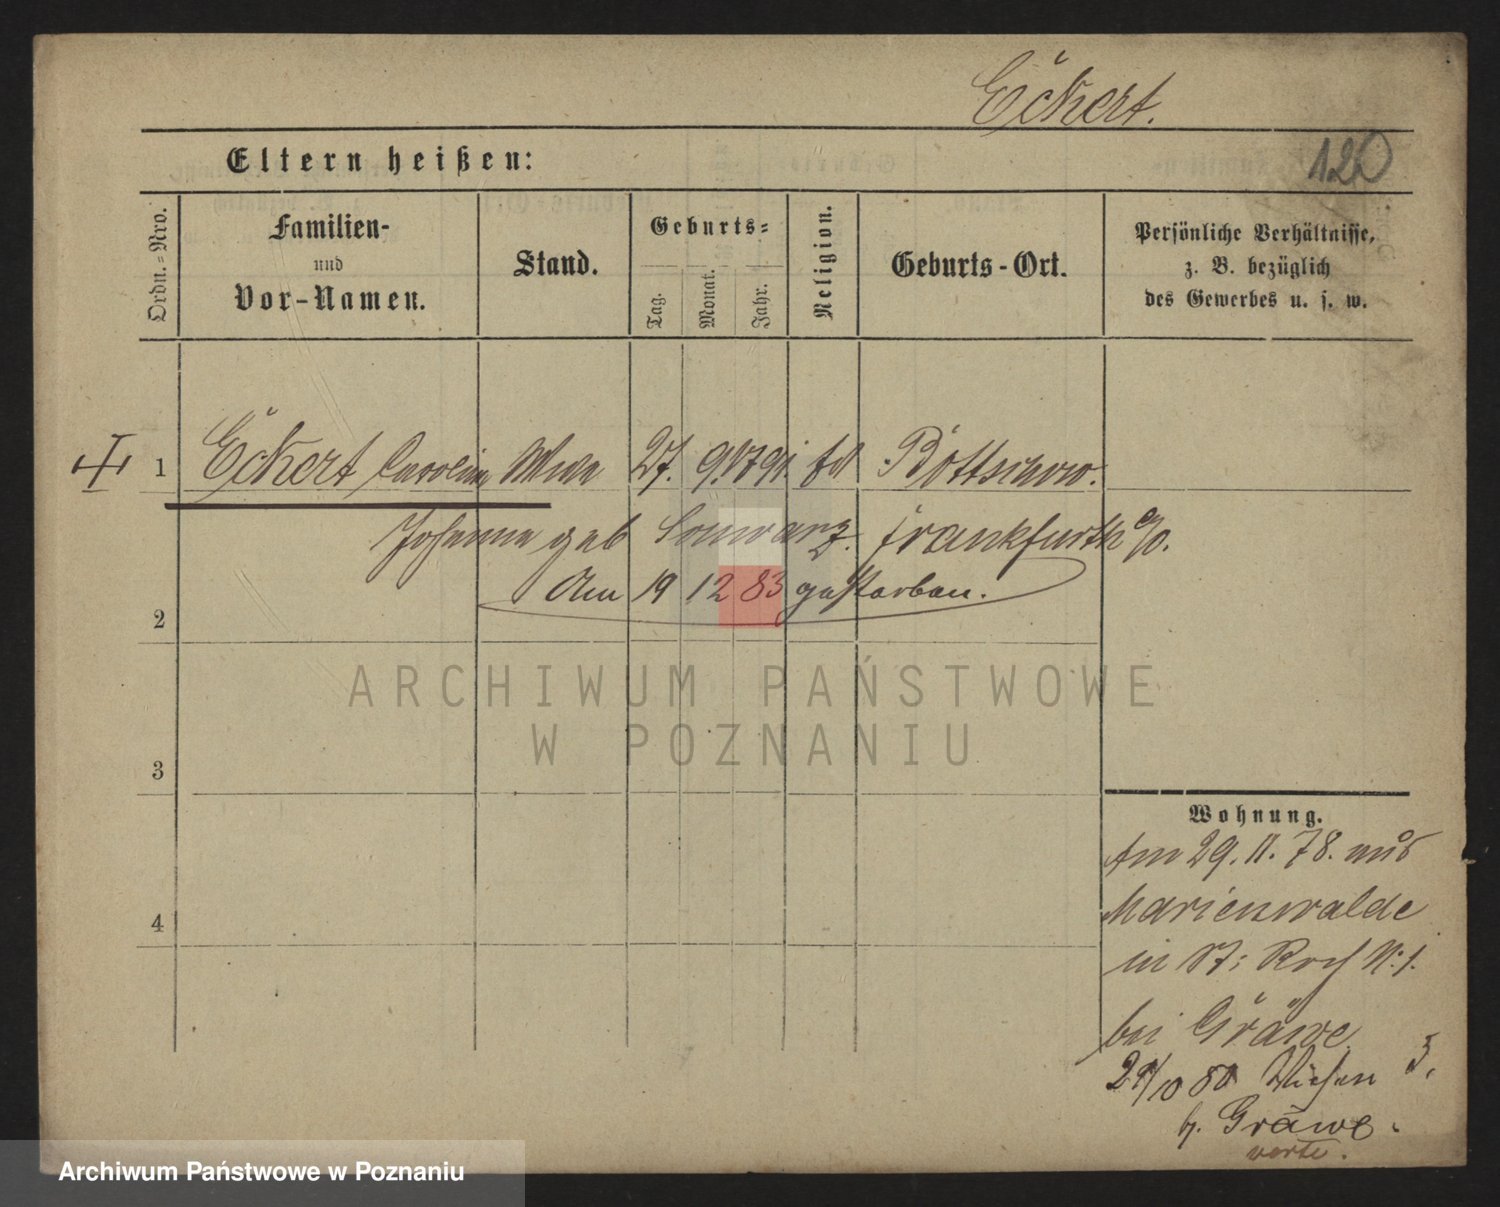 Eckert.
120
Eltern heißen:
Ordn.=Nro.
Familien-
und
Vor-Namen.
Stand.
Geburts=
Tag.
Monat.
Jahr.
Religion.
Geburts-Ort.
Persönliche Verhältnisse,
z. B. bezüglich
des Gewerbes u. s. w.
1 Eckert Caroline Wwe 27. 9. 1791. Böttschow.
Johanne geb Schwarz. Frankfurth a/o.
Am 19 12 83 gestorben.
2
3
4
ARCHIWUM PAŃSTWOWE
W POZNANIU
Wohnung.
Am 29. 11. 78. aus
Marienwalde
in St: Roch N: 1.
bei Gräwe
80 Wiesen 5,
b. Gräwe.
verte.
Archiwum Państwowe w Poznaniu